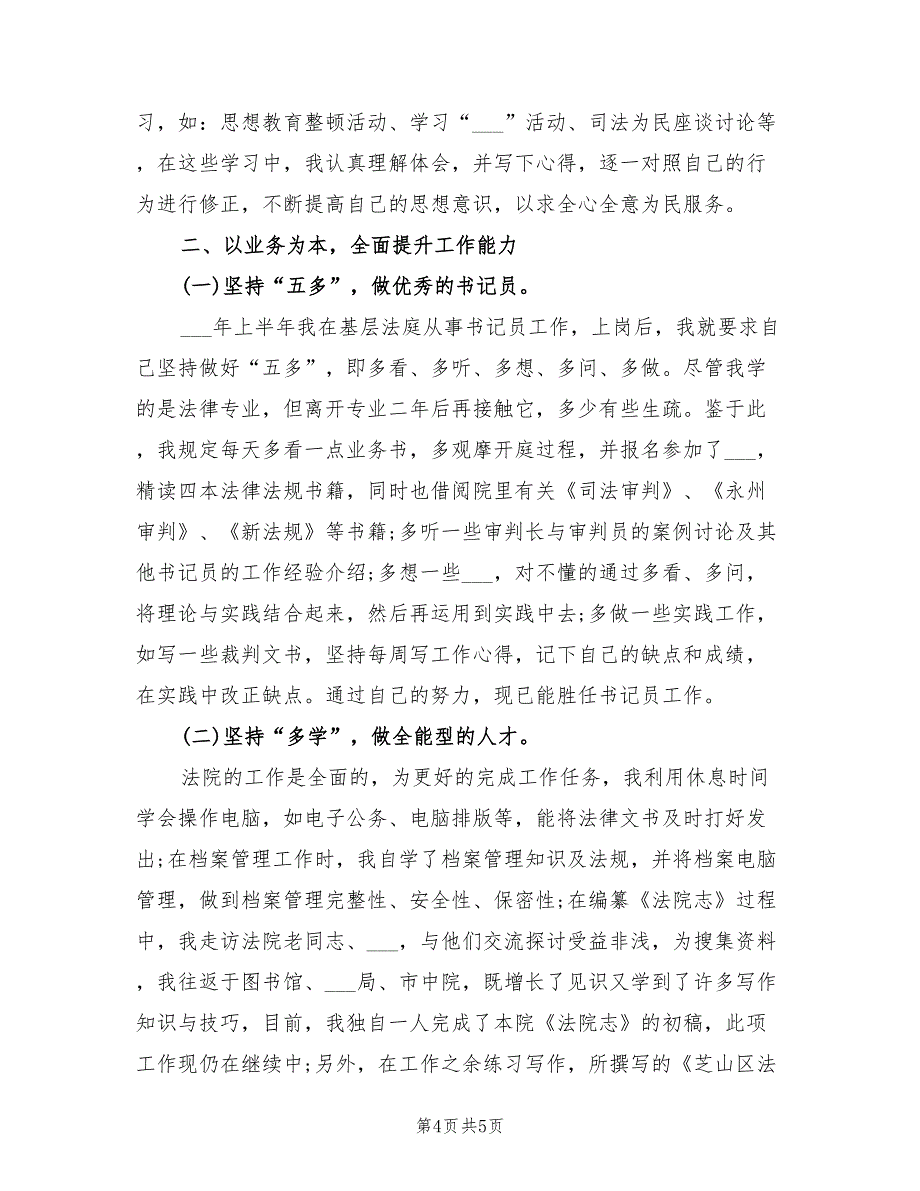 习，如：思想教育整顿活动、学习“___”活动、司法为民座谈讨论等
，在这些学习中，我认真理解体会，并写下心得，逐一对照自己的行
为进行修正，不断提高自己的思想意识，以求全心全意为民服务。
二、以业务为本，全面提升工作能力
(一)坚持“五多”，做优秀的书记员。
___年上半年我在基层法庭从事书记员工作，上岗后，我就要求自
己坚持做好“五多”，即多看、多听、多想、多问、多做。尽管我学
的是法律专业，但离开专业二年后再接触它，多少有些生疏。鉴于此
，我规定每天多看一点业务书，多观摩开庭过程，并报名参加了___，
精读四本法律法规书籍，同时也借阅院里有关《司法审判》、《永州
审判》、《新法规》等书籍;多听一些审判长与审判员的案例讨论及其
他书记员的工作经验介绍;多想一些___，对不懂的通过多看、多问，
将理论与实践结合起来，然后再运用到实践中去;多做一些实践工作，
如写一些裁判文书，坚持每周写工作心得，记下自己的缺点和成绩，
在实践中改正缺点。通过自己的努力，现已能胜任书记员工作。
(二)坚持“多学”，做全能型的人才。
法院的工作是全面的，为更好的完成工作任务，我利用休息时间
学会操作电脑，如电子公务、电脑排版等，能将法律文书及时打好发
出;在档案管理工作时，我自学了档案管理知识及法规，并将档案电脑
管理，做到档案管理完整性、安全性、保密性;在编纂《法院志》过程
中，我走访法院老同志、___，与他们交流探讨受益非浅，为搜集资料
，我往返于图书馆、___局、市中院，既增长了见识又学到了许多写作
知识与技巧，目前，我独自一人完成了本院《法院志》的初稿，此项
工作现仍在继续中;另外，在工作之余练习写作，所撰写的《芝山区法
第4页共5页